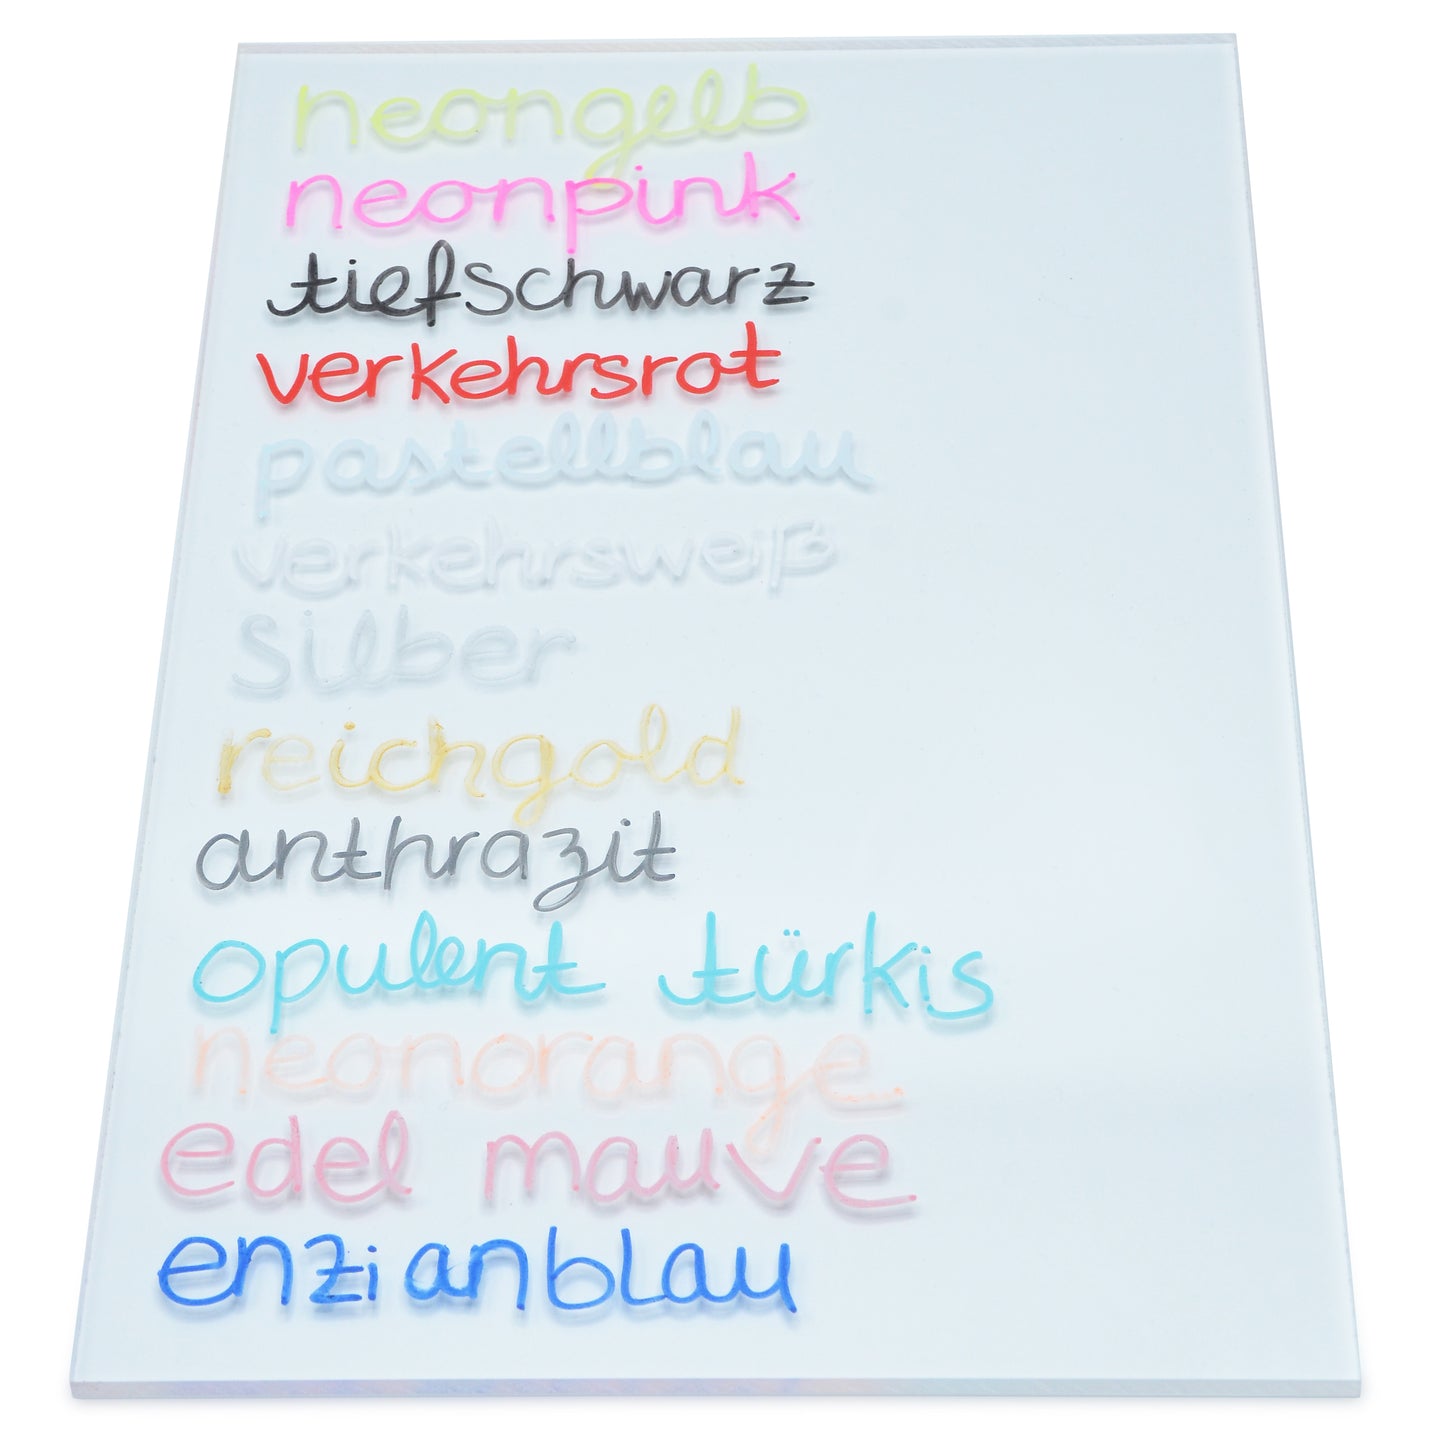 neongelb
neonpink
tiefschwarz
verkehrsrot
pastellblau
verkehrsweiß
Silber
reichgold
anthrazit
opulent türkis
neonorange
edel mauve
enzianblau